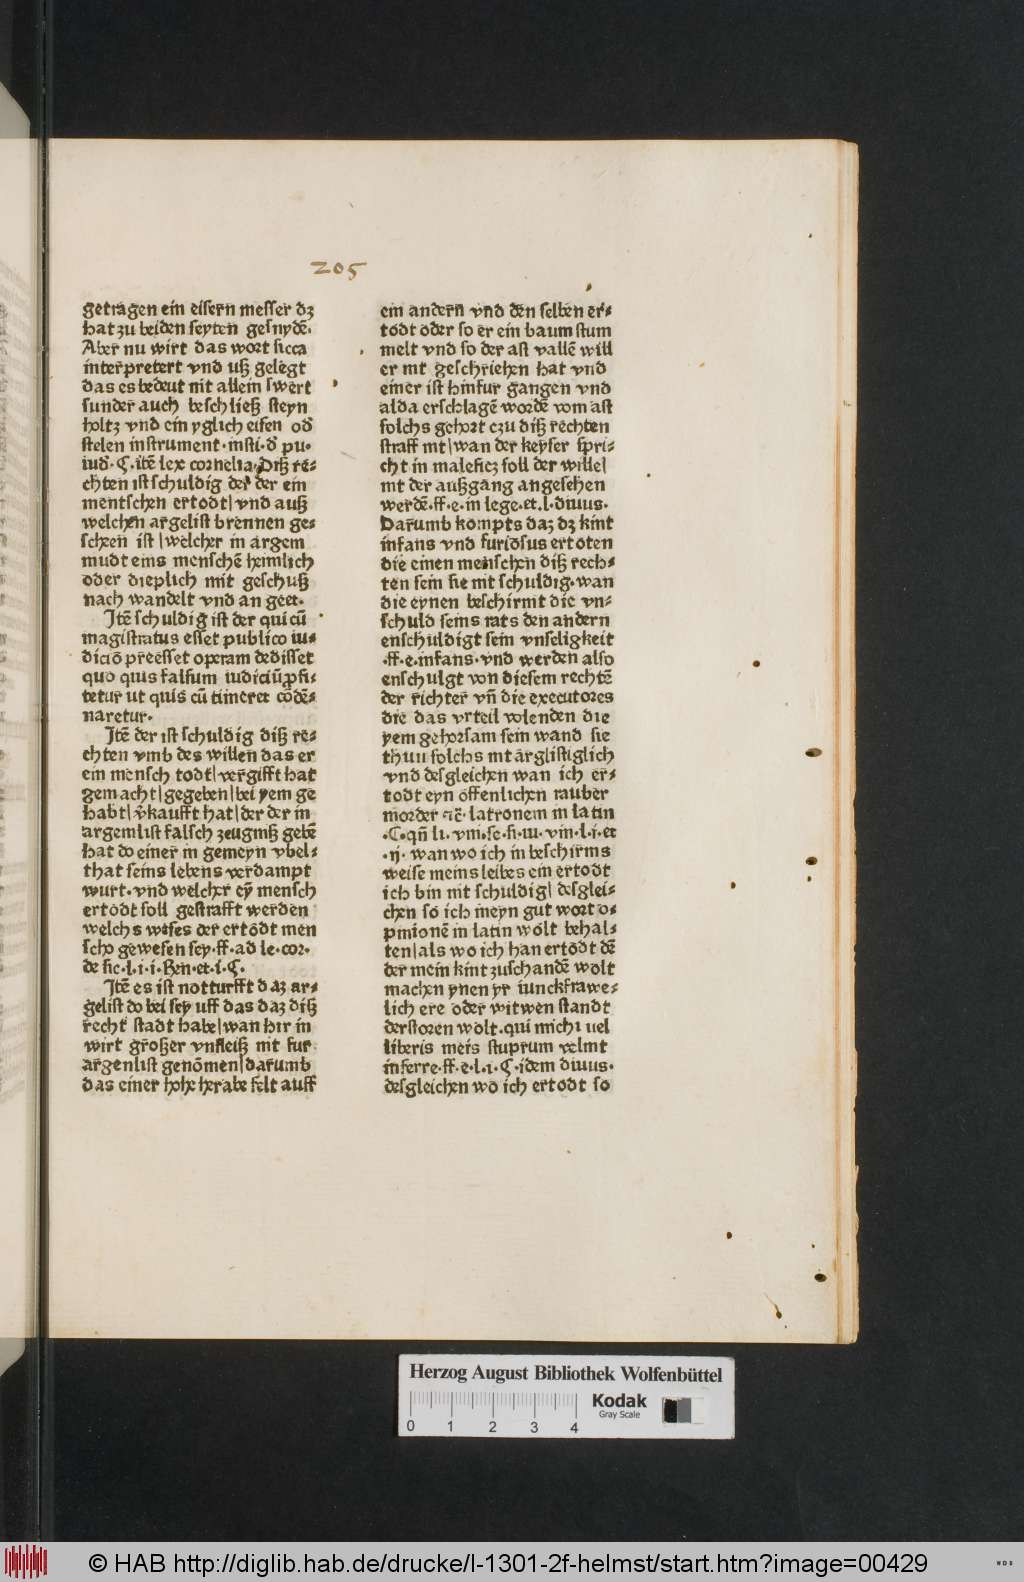 205
getragen ein eisern messer dz
hat zu beiden seyten gesnydẽ.
Aber nu wirt das wort sicca
interpretert vnd uß gelegt
das es bedeut nit allein swert
sunder auch beschließ steyn
holtz vnd ein yglich eisen od̃
stelen instrument·insti·d̃ pu·
iud̃·C·itẽ lex cornelia·Diß re⸗
chten ist schuldig der der ein
mentschen ertodt/vnd auß
welchen argelist brennen ge⸗
scheen ist/welcher in argem
mudt eins menschẽ heimlich
oder dieplich mit geschuß
nach wandelt vnd an geet·
Itẽ schuldig ist der qui cũ
magistratus esset publico iu⸗
diciõ preesset operam dedisset
quo quis falsum iudiciũ ꝓfi⸗
tetur ut quis cũ timeret cõdẽ⸗
naretur·
Itẽ der ist schuldig diß re⸗
chten vmb des willen das er
ein mensch todt/vergifft hat
gemacht/gegeben/bei yem ge
habt/ṽkaufft hat/der der in
argemlist falsch zeugniß gebẽ
hat do einer in gemeyn vbel⸗
that seins lebens verdampt
wurt·vnd welcher eỹ mensch
ertodt soll gestrafft werden
welchs weses der ertodt men
scho gewesen sey·ff·ad le·cor·
de sic·l·i·i·Ren·et·i·C·
Itẽ es ist notturfft daz ar⸗
gelist do bei sey uff das daz diß
recht stadt habe/wan hir in
wirt großer vnfleiß nit fur
argenlist genõmen/darumb
das einer hohe herabe felt auff
ein andern vnd den selben er⸗
todt oder so er ein baum stum
melt vnd so der ast vallẽ will
er nit geschriehen hat vnd
einer ist hinfur gangen vnd
alda erschlagẽ wordẽ vom ast
solchs gehort czu diß rechten
straff nit/wan der keyser spri⸗
cht in maleficz soll der wille/
nit der außgang angesehen
werdẽ·ff·e·in lege·et·l·diuus·
Darumb kompts daz dz kint
infans vnd furiosus ertoten
die einen menschen diß rech⸗
ten sein sie nit schuldig·wan
die eynen beschirmt die vn⸗
schuld seins rats den andern
enschuldigt sein vnseligkeit
·ff·e·infans·vnd werden also
enschulgt von diesem rechtẽ
der richter vñ die executores
die das vrteil volenden die
yem gehorsam sein wand sie
thuu solchs nit arglistiglich
vnd desgleichen wan ich er⸗
todt eyn offenlichen rauber
morder ⁊c̃· latronem in latin
·C·qñ li·vni·se·si·iu·vin·l·i·et
·ij·wan wo ich in beschirms
weise meins leibes ein ertodt
ich bin nit schuldig/desglei⸗
chen so ich meyn gut wort o⸗
pinionẽ in latin wolt behal⸗
ten/als wo ich han ertodt dẽ
der mein kint zuschandẽ wolt
machen ynen yr iunckfrawe⸗
lich ere oder witwen standt
derstoren wolt·qui michi uel
liberis meis stuprum velint
inferre·ff·e·l·i·C·idem diuus·
desgleichen wo ich ertodt so
Herzog August Bibliothek Wolfenbüttel
Kodak
Gray Scale
0 1 2 3 4
© HAB http://diglib.hab.de/drucke/l-1301-2f-helmst/start.htm?image=00429